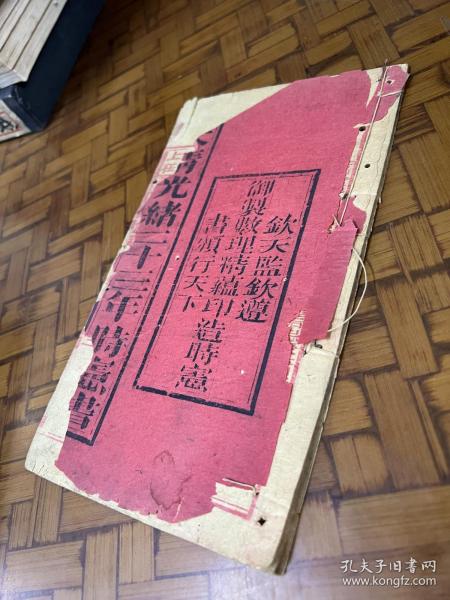 欽天監欽遵
御製數理精蘊印造時憲
書頒行天下
清光緒二十三年時憲書
孔夫子旧书网
www.kongfz.com